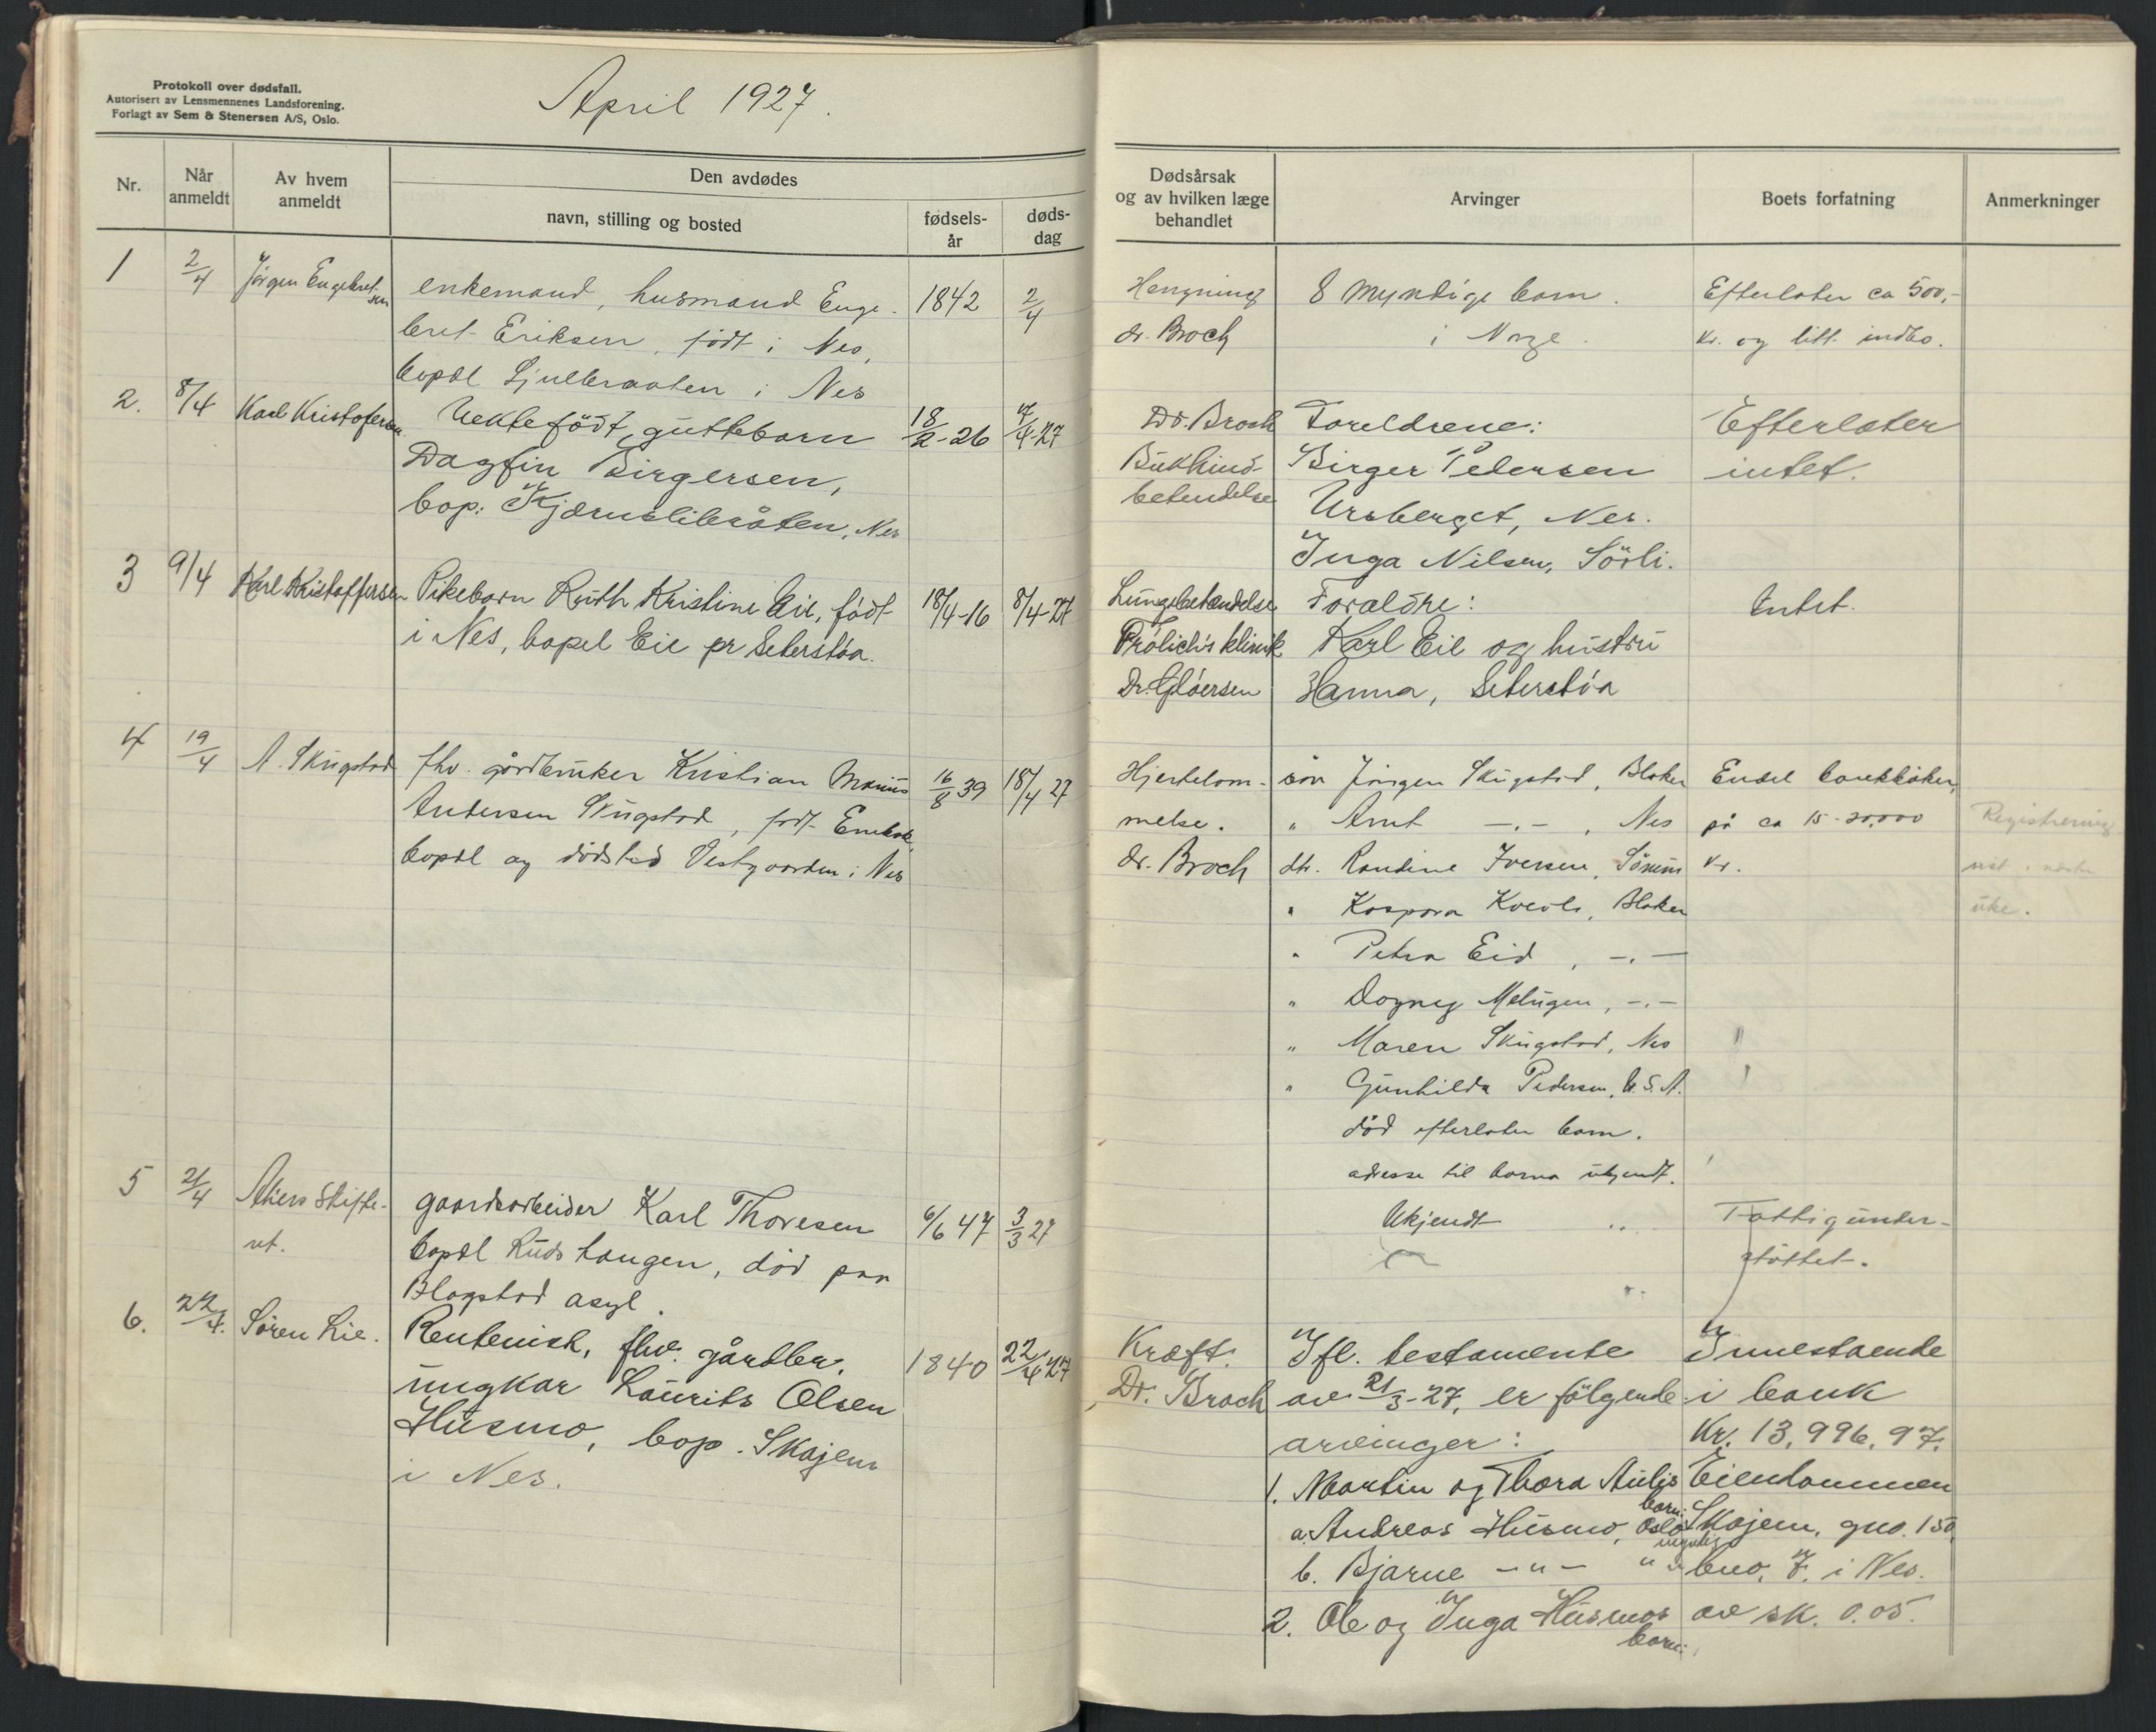 Protokoll over dødsfall.
Autorisert av Lensmennenes Landsforening.
Forlagt av Sem & Stenersen A/S, Oslo.
April 1927.
Nr.
Når
anmeldt
Av hvem
anmeldt
Den avdødes
navn, stilling og bosted
fødsels-
år
døds-
dag
Dødsårsak
og av hvilken læge
behandlet
Arvinger
Boets forfatning
Anmerkninger
1 2/4 Jörgen Engebret-
sen
enkemand, husmand Enge-
bret Eriksen, født i Nes,
bopæl i Nes
1842 2/4
Hengning
dr. Broch
8 myndige barn.
i Norge.
Efterlater ca 500,-
kr. og litt indbo.
2. 8/4 Karl Kristofersen
Uektefödt, guttebarn
Dagfin Birgersen,
bop: Kjærnslibråten, Nes
18/2-26 7/4-27
Dr. Broch
Bukhind-
betendelse
Foreldrene:
Birger Pedersen
Ursberget, Nes.
Inga Nilsen, Sörli.
Efterlater
intet.
3 9/4 Karl Kristoffersen
Pikebarn Ruth Kristine Eie, födt
i Nes, bopel Eie pr Seterstöa.
18/4-16 8/4-27
Lungebetændelse
Frölich's klinik
Dr. Glöersen
Forældre:
Karl Eie og hustru
Hanna, Seterstöa
Intet.
4 19/4 A. Skugstad
fhv. gårdbruker Kristian Marius
Andersen Skugstad, født Enebak,
bopæl og dödsted Vestgaarden i Nes
16/8 39 18/4 27
Hjertelam-
melse.
dr. Broch
sön Jörgen Skugstad, Blaker
" Arnt -.-, Nes
dtr. Randine Iversen, Sörum
" Kaspara Kvevli, Blaker
" Petra Eid, -.-
" Dagny Melnigen, -.-
" Maren Skugstad, Nes
" Gunhilda Pedersen, U.S.A.
död efterlater barn.
adresse til barna ukjendt.
Endel bankböker,
på ca 15-20,000
kr.
Registrering
uke.
5 21/4 Akers Skifte-
ret.
gaardsarbeider Karl Thoresen
bopæl Rudshaugen, död paa
Blagstad asyl.
6/6 47 3/3 27
Ukjendt
Fattigunder-
støttet.
6. 22/4. Sören Lie.
Rentenist, fhv. gårdbr.
ungkar Laurits Olsen
Husmo, bop. Skajem
i Nes.
1840 22/4 27
Kræft.
Dr. Broch
Ifl. testamente
av 21/3-27, er fölgende
arvinger:
1. Martin og Thora Aulis
barn:
a. Andreas Husmo, Oslo
myndig
b. Bjarne -"- " "
2. Ole og Inga Husmos
barn:
Innestaende
i bank
Kr. 13,996,97.
Eiendommen
Skajem, gno. 150,
bno. 7. i Nes.
av sk. 0.05.